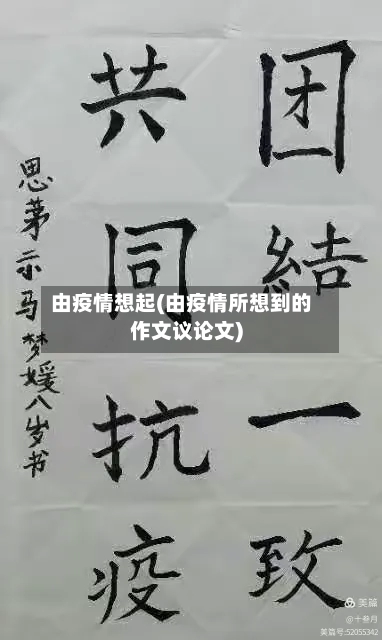 团結一致
共同抗疫
思茅示马梦媛八岁书
由疫情想起(由疫情所想到的
作文议论文)
美篇
@十叁月
美篇号:52055342